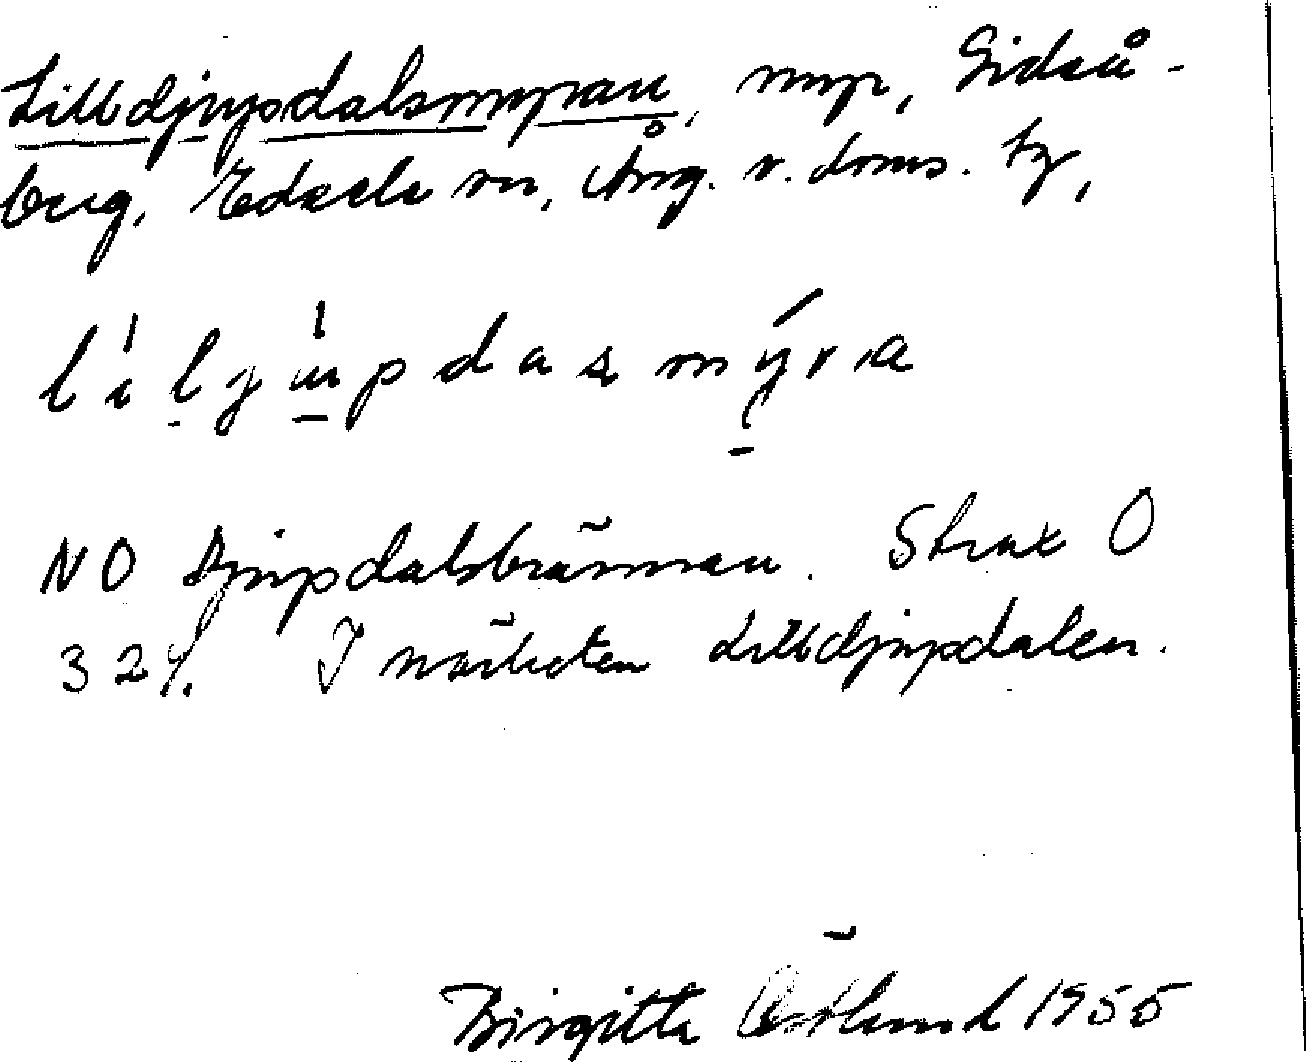 Lilldjupdalsmyran, myr, Gideå-
berg, Edsele sn, Ång. v. doms. tg,
liljupdasmyra
NO Djupdalsbrännan. Strax O
324. I närheten Lilldjupdalen.
Birgitta Östlund 1955